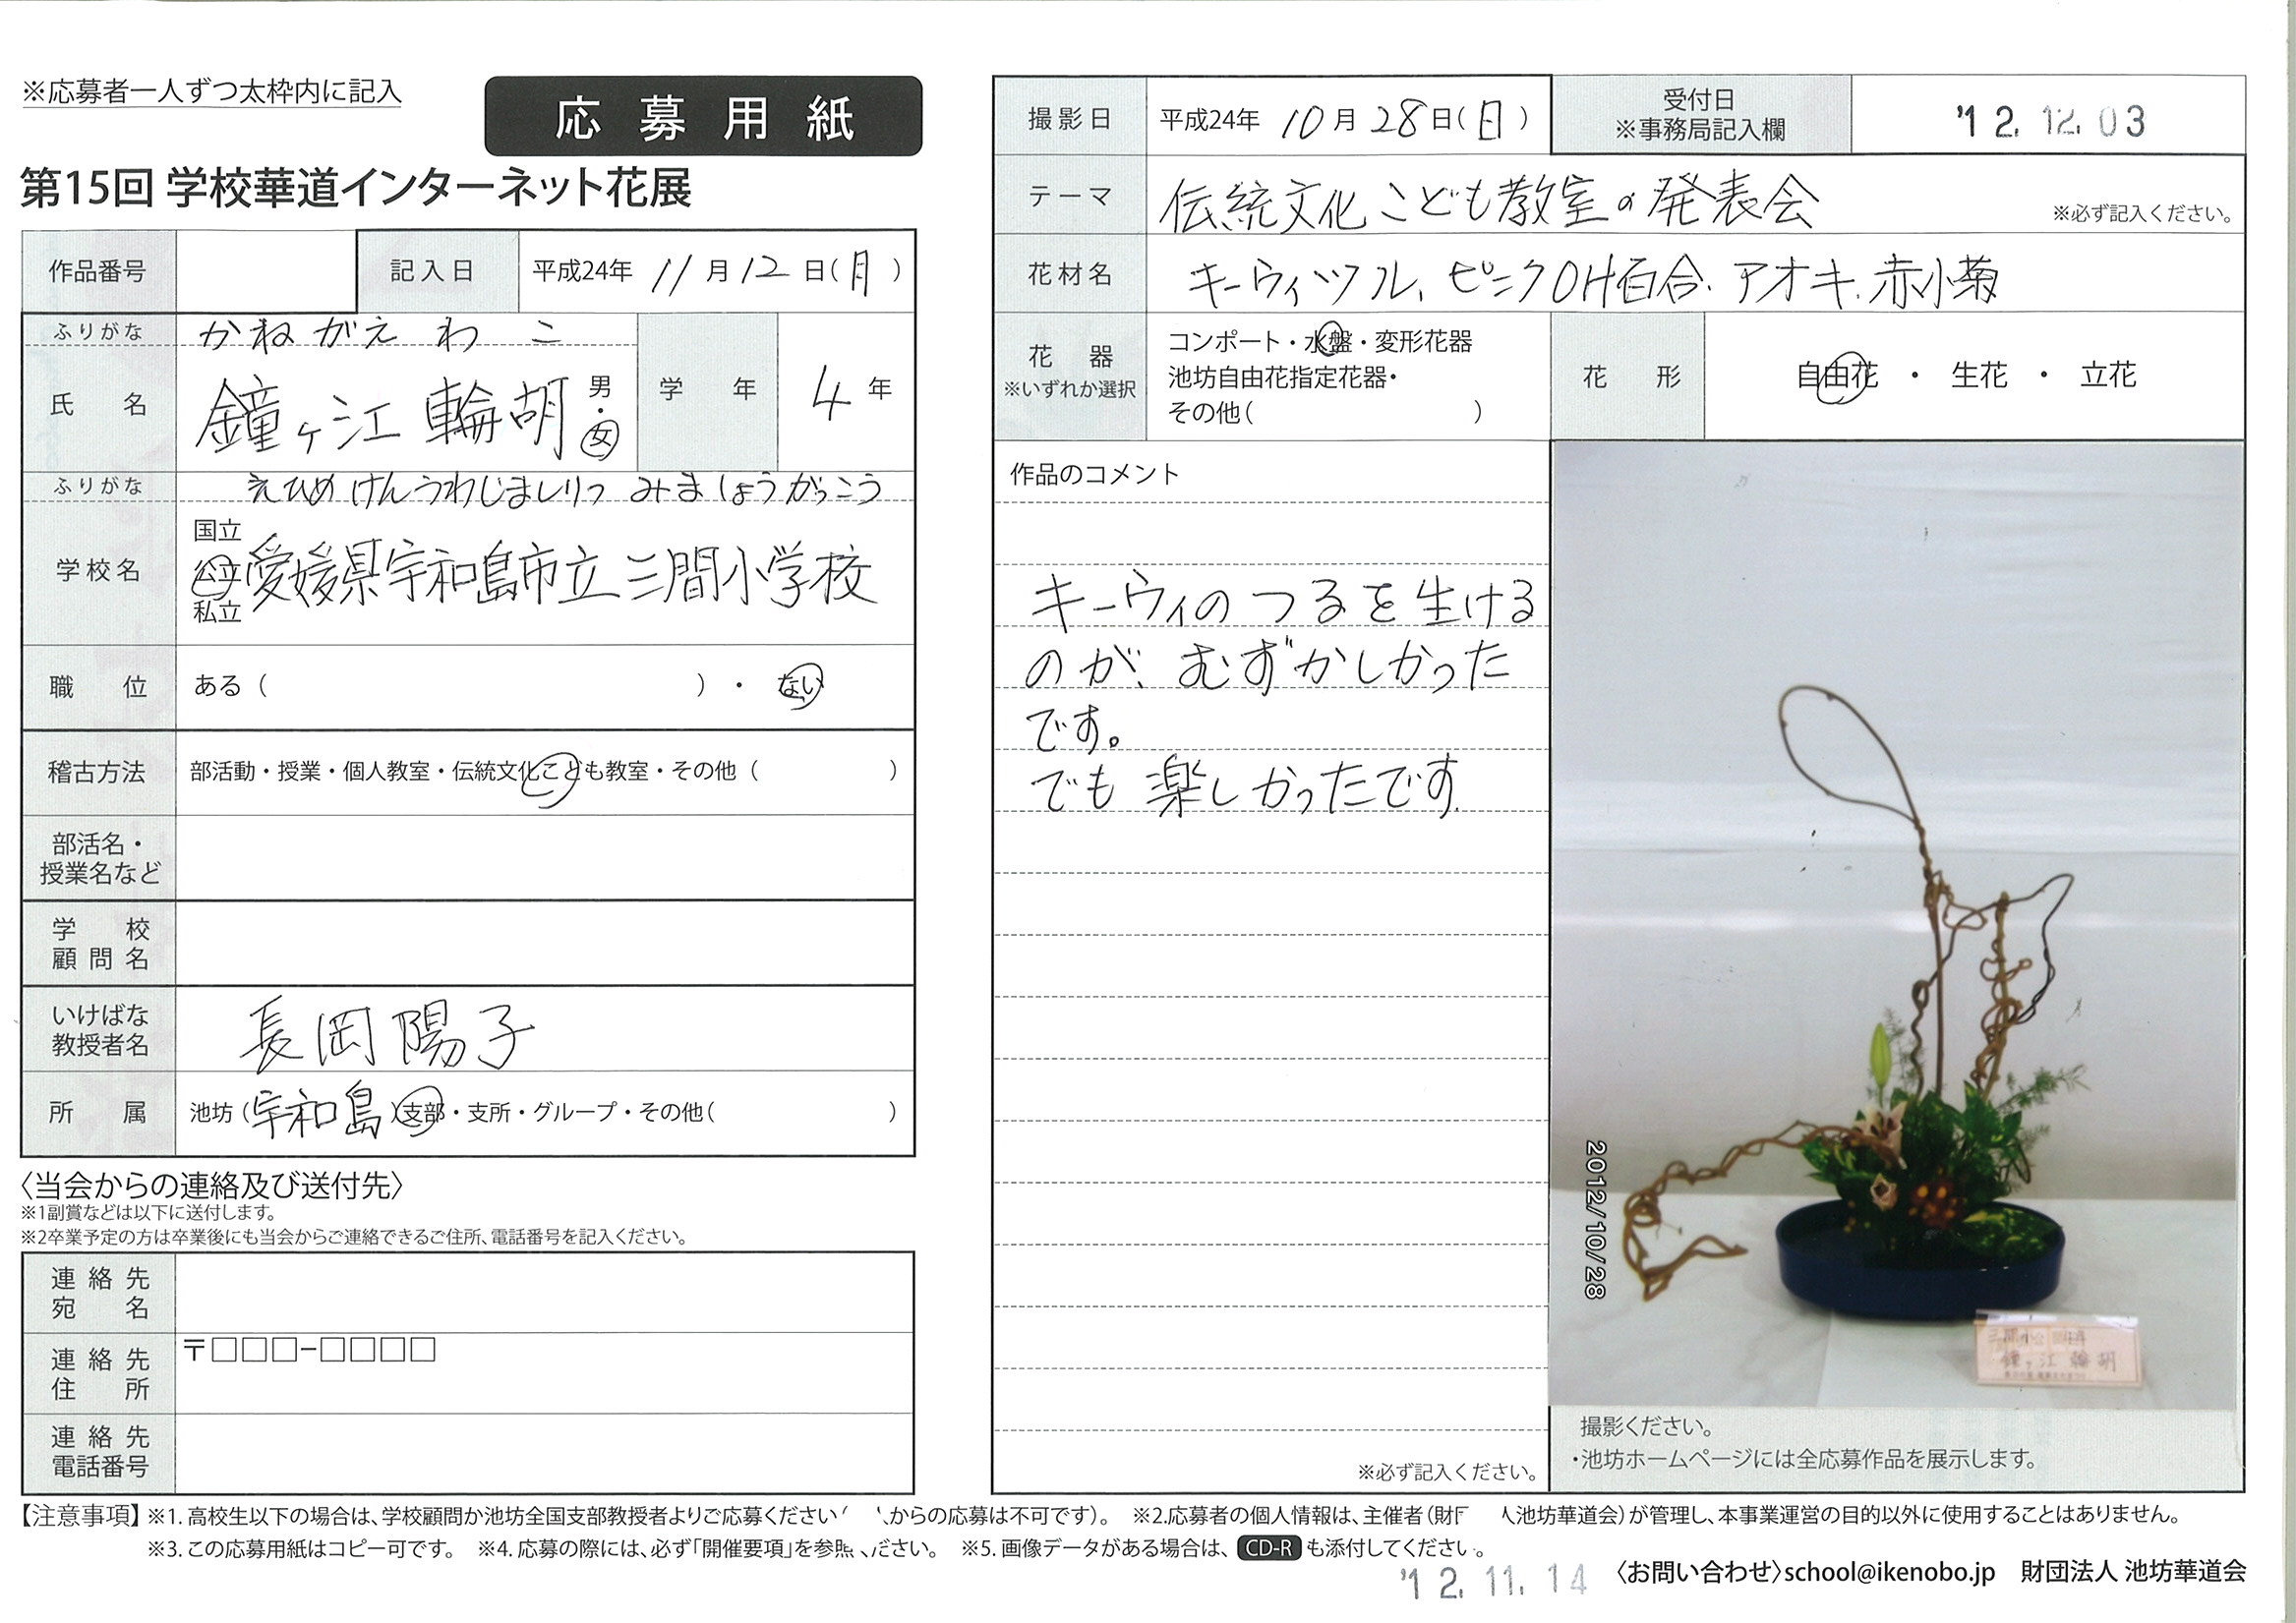 ※応募者一人ずつ太枠内に記入
応募用紙
第15回 学校華道インターネット花展
作品番号
記入日 平成24年 11月12日(月)
ふりがな かねがえ わこ
氏名 鐘ヶ江 輪胡 男・女
学年 4年
ふりがな えひめけんうわじましりつ みましょうがっこう
学校名 国立 公立 私立 愛媛県宇和島市立三間小学校
職位 ある( )・ ない
稽古方法 部活動・授業・個人教室・伝統文化こども教室・その他( )
部活名・
授業名など
学校
顧問名
いけばな
教授者名 長岡陽子
所属 池坊(宇和島)支部・支所・グループ・その他( )
〈当会からの連絡及び送付先〉
※1副賞などは以下に送付します。
※2卒業予定の方は卒業後にも当会からご連絡できるご住所、電話番号を記入ください。
連絡先
宛名
連絡先
住所 〒□□□-□□□□
連絡先
電話番号
撮影日 平成24年 10月28日(日)
受付日
※事務局記入欄 '12.12.03
テーマ 伝統文化こども教室の発表会 ※必ず記入ください。
花材名 キーウィツル、ピンクOH百合.アオキ.赤小菊
花器
※いずれか選択
コンポート・水盤・変形花器
池坊自由花指定花器・
その他( )
花形 自由花 ・ 生花 ・ 立花
作品のコメント
キーウィのつるを生ける
のが、むずかしかった
です。
でも楽しかったです.
※必ず記入ください。
2012/10/28
鐘ヶ江 輪胡
撮影ください。
・池坊ホームページには全応募作品を展示します。
【注意事項】※1.高校生以下の場合は、学校顧問か池坊全国支部教授者よりご応募ください( からの応募は不可です)。 ※2.応募者の個人情報は、主催者(財 池坊華道会)が管理し、本事業運営の目的以外に使用することはありません。
※3.この応募用紙はコピー可です。 ※4.応募の際には、必ず「開催要項」を参照 ださい。 ※5.画像データがある場合は、CD-Rも添付してください。
'12.11.14
〈お問い合わせ〉school@ikenobo.jp 財団法人 池坊華道会